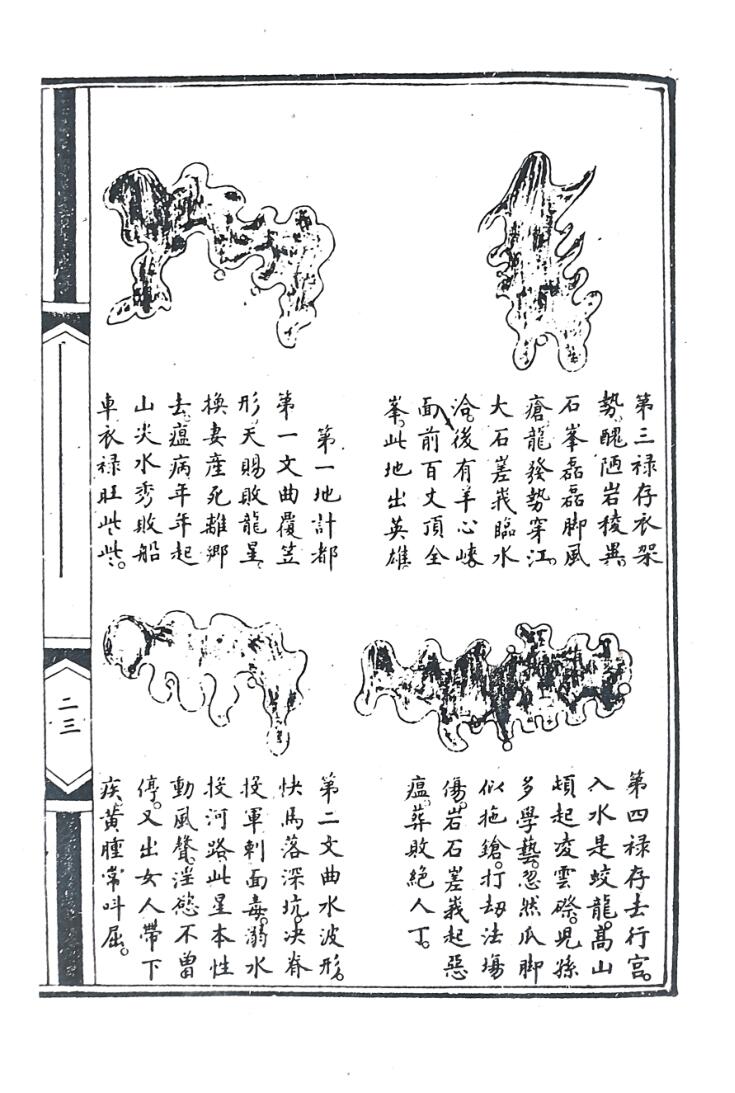 第三祿存衣架
勢。醜陋岩稜異。
石峯磊磊脚風
瘡。龍發勢穿江。
大石差我臨水
洽。後有羊心崍
面前百丈頂全
峯。此地出英雄
第一地計都
第一文曲覆笠
形。天賜敗龍星。
換妻產死離鄉
去。瘟病年年起
山尖水秀敗船
車。衣祿旺些些。
第四祿存去行宮。
入水是蛟龍。高山
頓起凌雲磜。児孫
多學藝。忽然瓜脚
似拖鎗。打刼法塲
傷。岩石差我起惡
瘟。葬敗絕人丁。
第二文曲水波形。
快馬落深坑。决脊
投軍刺面毒。溺水
投河路。此星本性
動風聲。淫慾不曽
停。又出女人帶下
疾。黃腫常呌屈。
二三